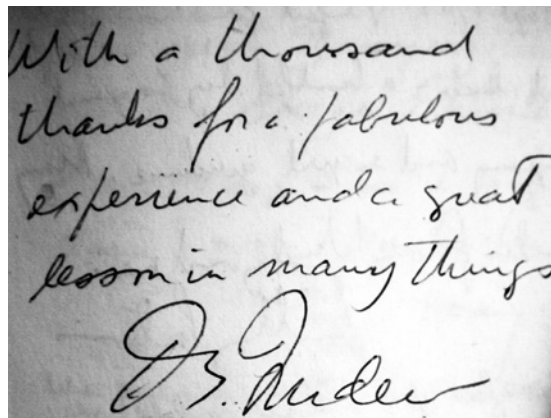 With a thousand
thanks for a fabulous
experience and a great
lesson in many things